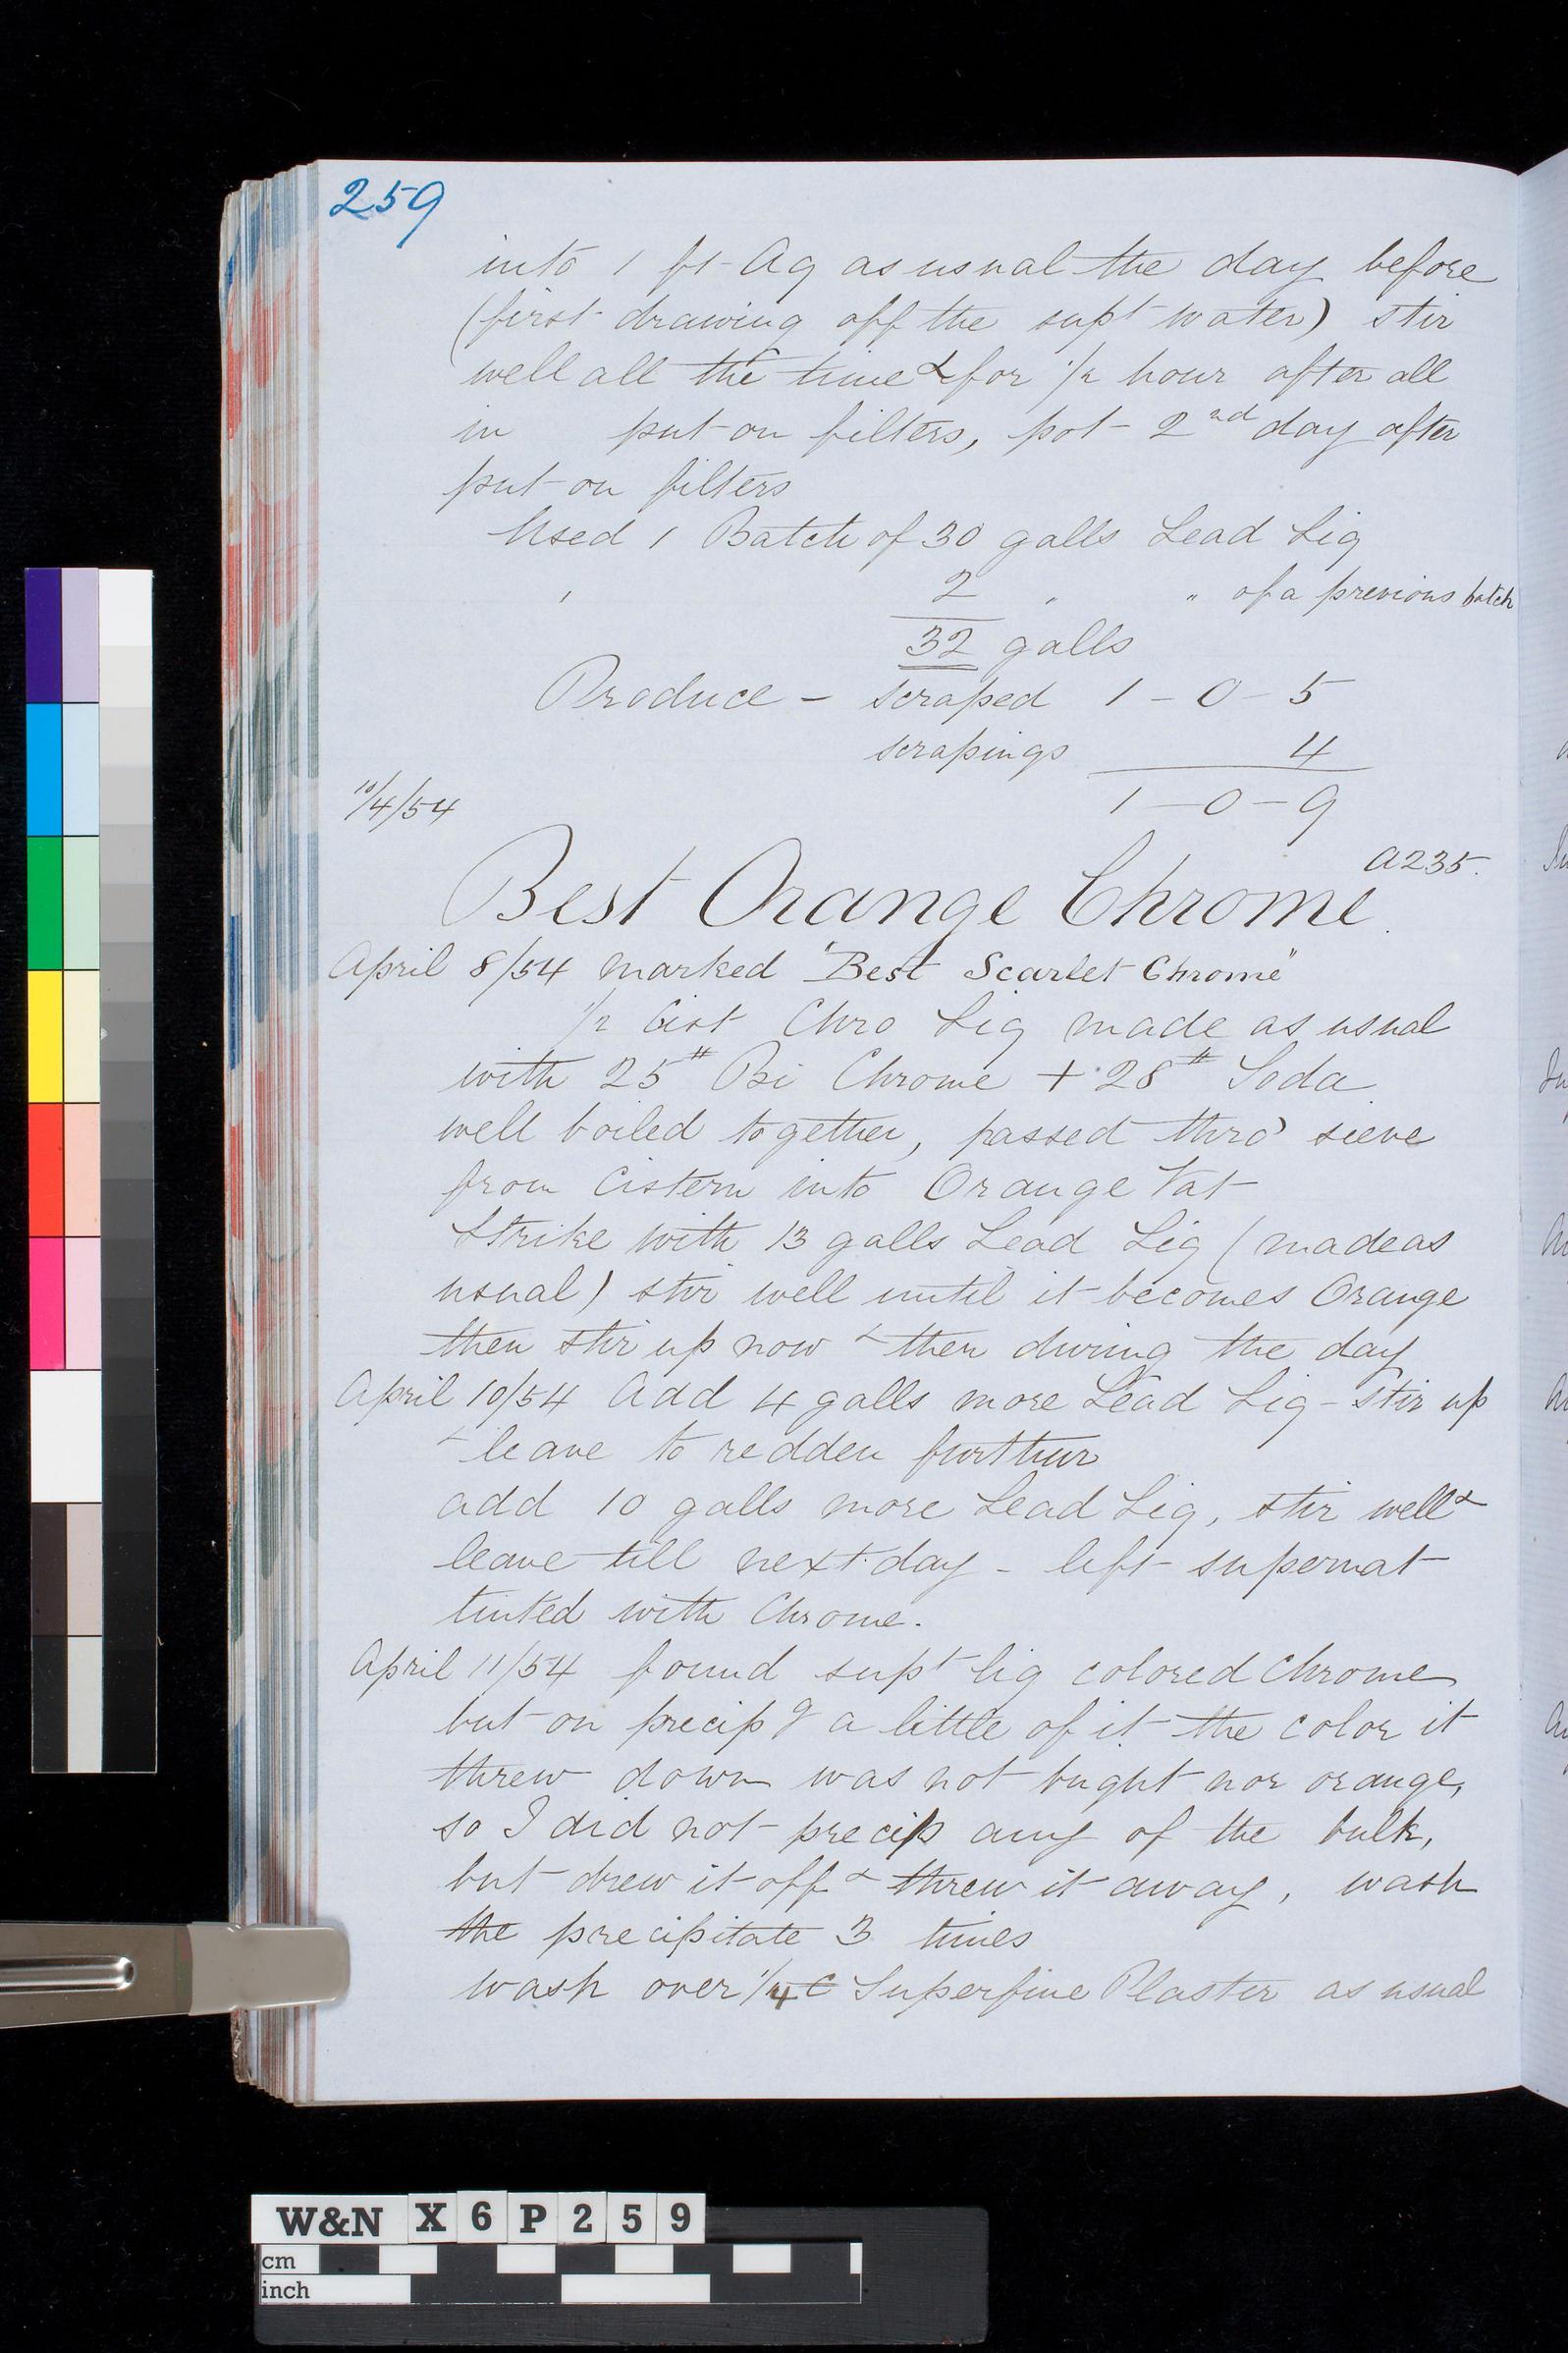 259
into 1 ft Aq as usual the day before
(first drawing off the supt water) stir
well all the time & for 1/2 hour after all
in put on filters, pot 2nd day after
put on filters
Used 1 Batch of 30 galls Lead Liq
" 2 " " of a previous batch
32 galls
Produce - scraped 1 - 0 - 5
scrapings 4
10/4/54 1 - 0 - 9
A235.
Best Orange Chrome.
April 8/54 marked "Best Scarlet Chrome"
1/2 Cist Chro Liq made as usual
with 25# Bi Chrome + 28# Soda
well boiled together, passed thro' sieve
from Cistern into Orange Vat
Strike with 13 galls Lead Liq (made as
usual) stir well until it becomes Orange
then stir up now & then during the day
April 10/54 Add 4 galls more Lead Liq - Stir up
& leave to redden furthur
add 10 galls more Lead Liq, stir well &
leave till next day - left supernat
tinted with Chrome.
April 11/54 found supt liq colored Chrome
but on precipg a little of it the color it
threw down was not bright nor orange,
so I did not precip any of the bulk,
but drew it off & threw it away, wash
the precipitate 3 times
wash over 1/4 C Superfine Plaster as usual
W&N X6P259
cm
inch